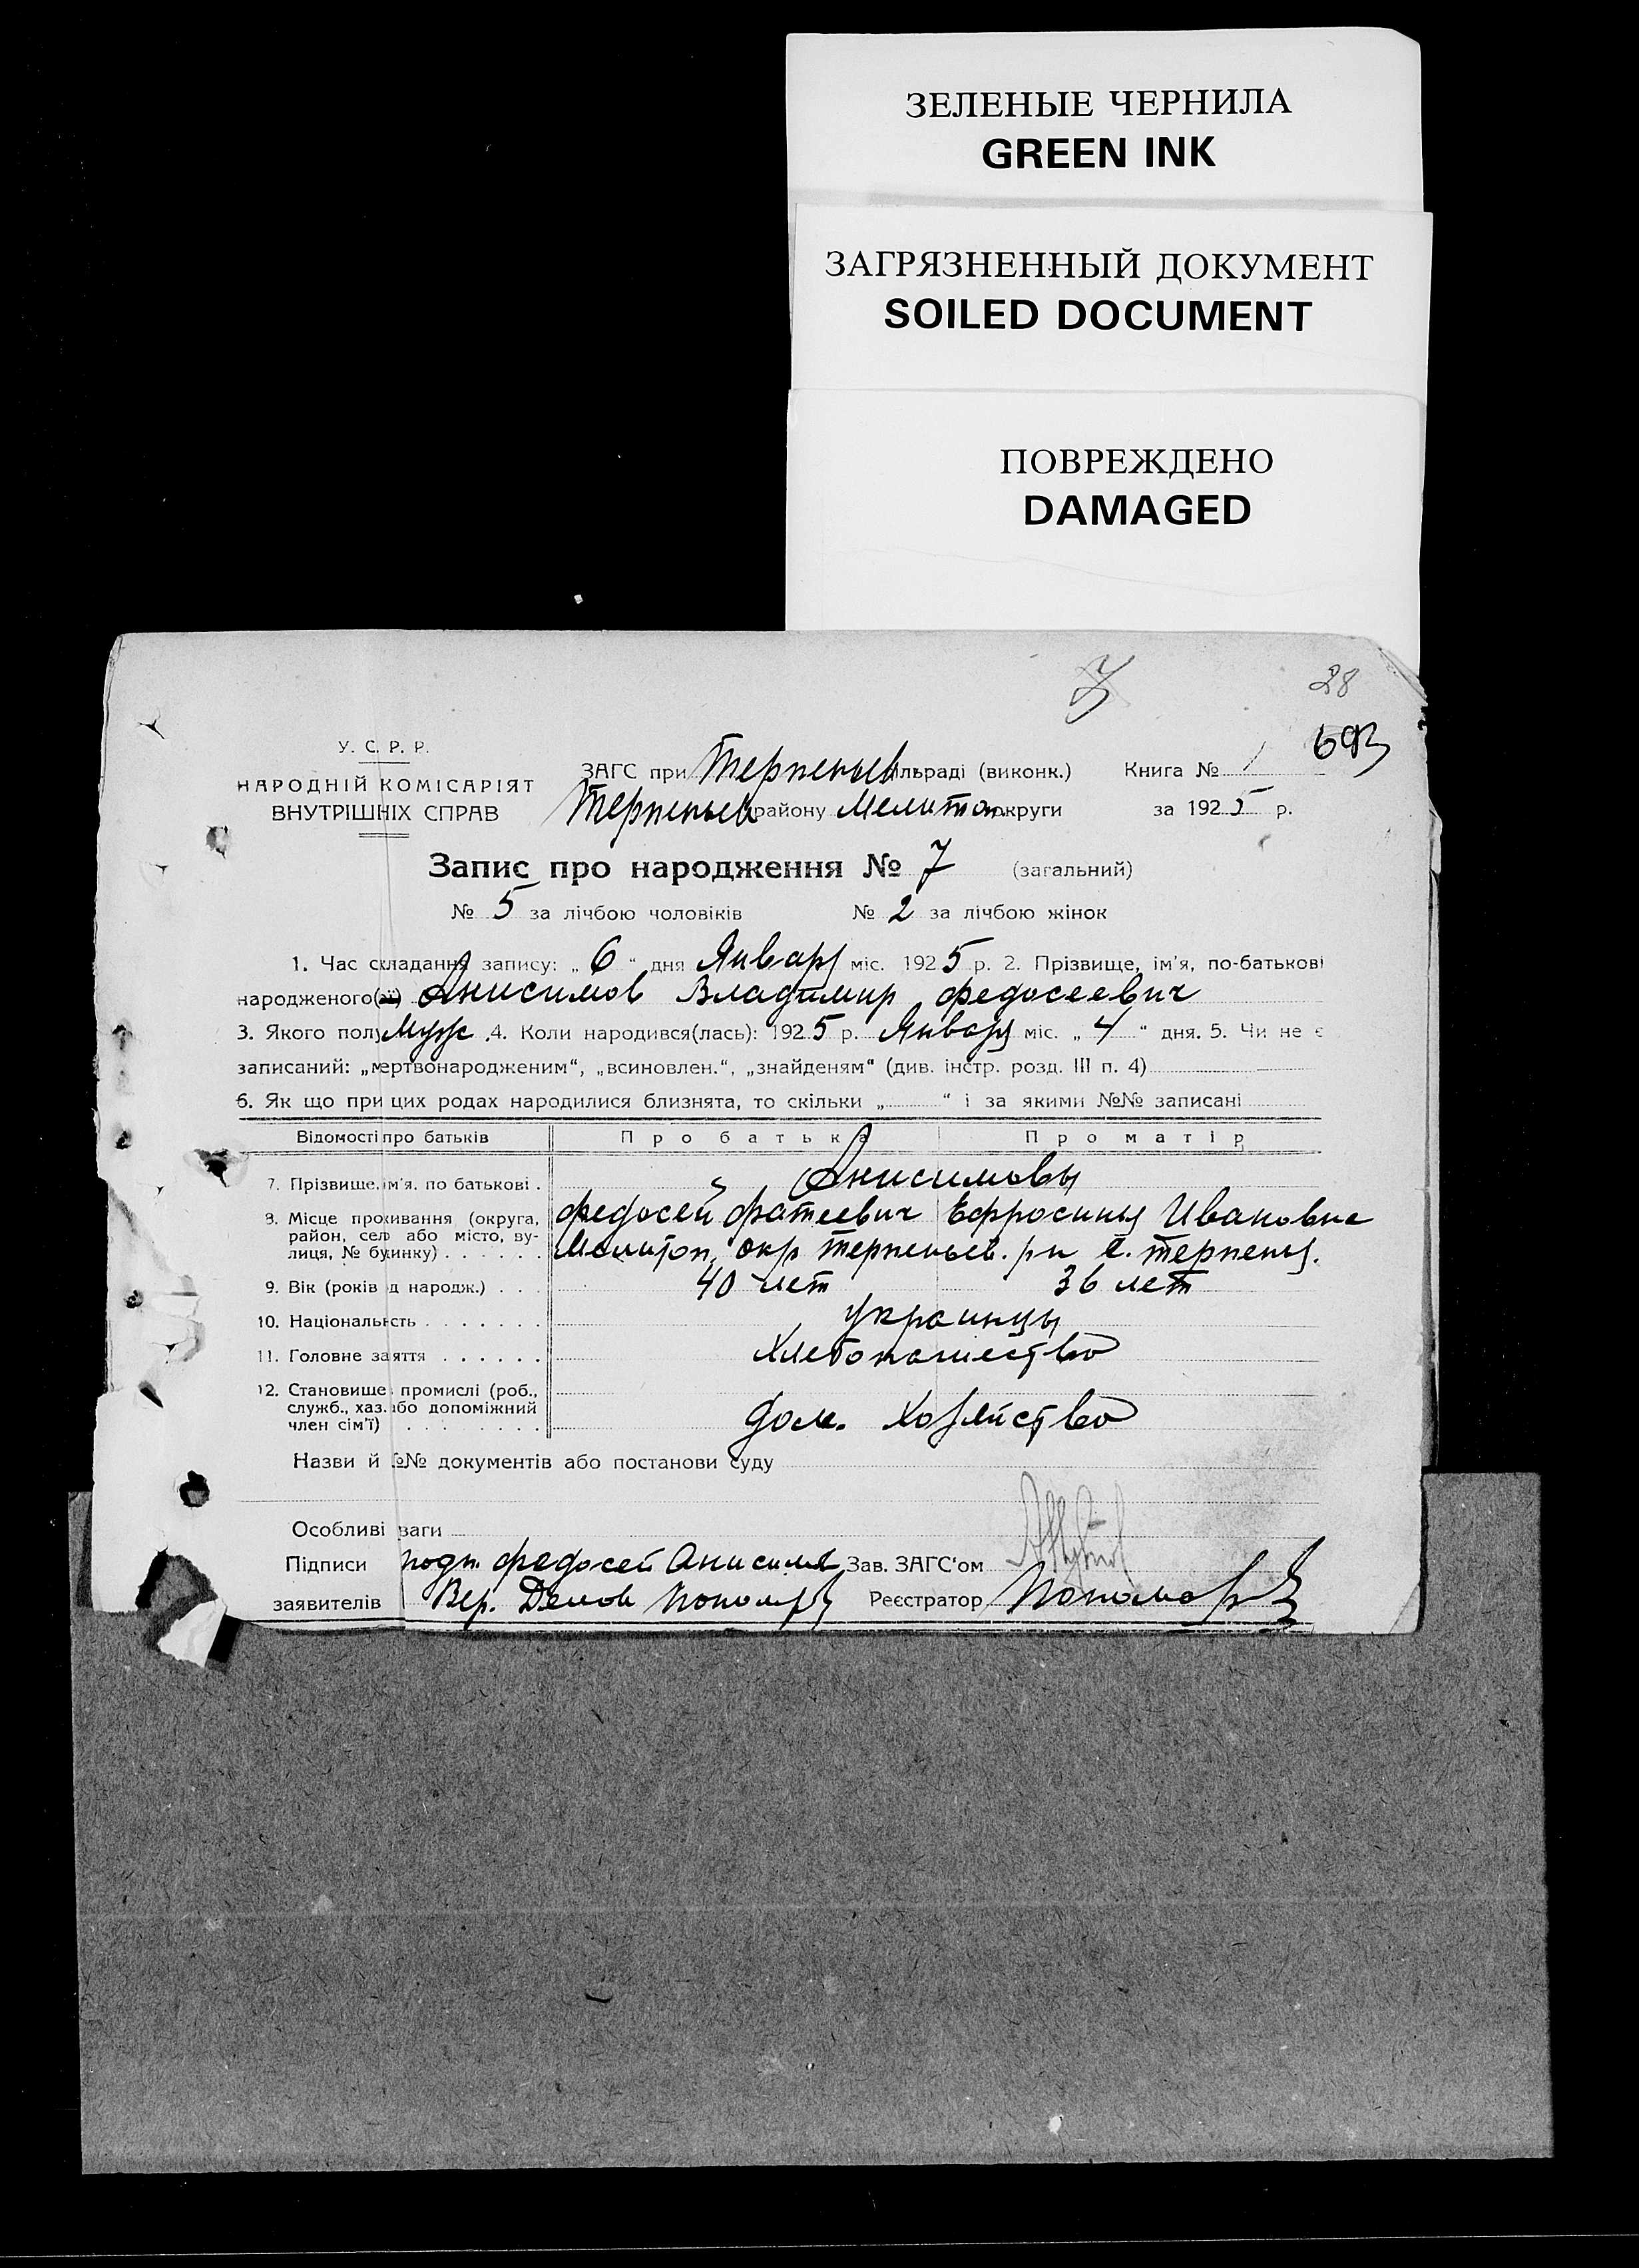 ЗЕЛЕНЫЕ ЧЕРНИЛА
GREEN INK
ЗАГРЯЗНЕННЫЙ ДОКУМЕНТ
SOILED DOCUMENT
ПОВРЕЖДЕНО
DAMAGED
7 28
693
У. С. Р. Р.
НАРОДНІЙ КОМІСАРІЯТ
ВНУТРІШНІХ СПРАВ
ЗАГС при Терпеньев ільраді (виконк.) Книга № 1
Терпеньев району Мелитоп. округи за 1925 р.
Запис про народження № 7 (загальний)
№ 5 за лічбою чоловіків № 2 за лічбою жінок
1. Час складання запису: „ 6 “ дня Января міс. 1925 р. 2. Прізвище, ім'я, по-батькові
народженого(ї) Анисимов Владимир Федосеевич
3. Якого полу Муж. 4. Коли народився(лась): 1925 р. Января міс. „ 4 “ дня. 5. Чи не є
записаний: „мертвонародженим“, „всиновлен.“, „знайденям“ (див. інстр. розд. III п. 4)
6. Як що при цих родах народилися близнята, то скільки „ “ і за якими №№ записані
Відомості про батьків Про батька Про матір
7. Прізвище, ім'я, по батькові . Анисимовы
Федосей Фатеевич Ефросинья Ивановна
8. Місце проживання (округа,
район, село або місто, ву-
лиця, № будинку) . . . . . . Мелитоп. окр Терпеньев. рн с. Терпенья.
9. Вік (років д народж.) . . . 40 лет 36 лет
10. Національність . . . . . . . украинцы
11. Головне заяття . . . . . . Хлебопашество
12. Становище промислі (роб.,
служб., хаз. або допоміжний
член сім'ї) . . . . . . . . Дом. Хозяйство
Назви й №№ документів або постанови суду
Особливі ваги
Підписи подп. Федосей Анисимов Зав. ЗАГС'ом
заявителів Вер. Делов Пономарев Реєстратор Пономарев